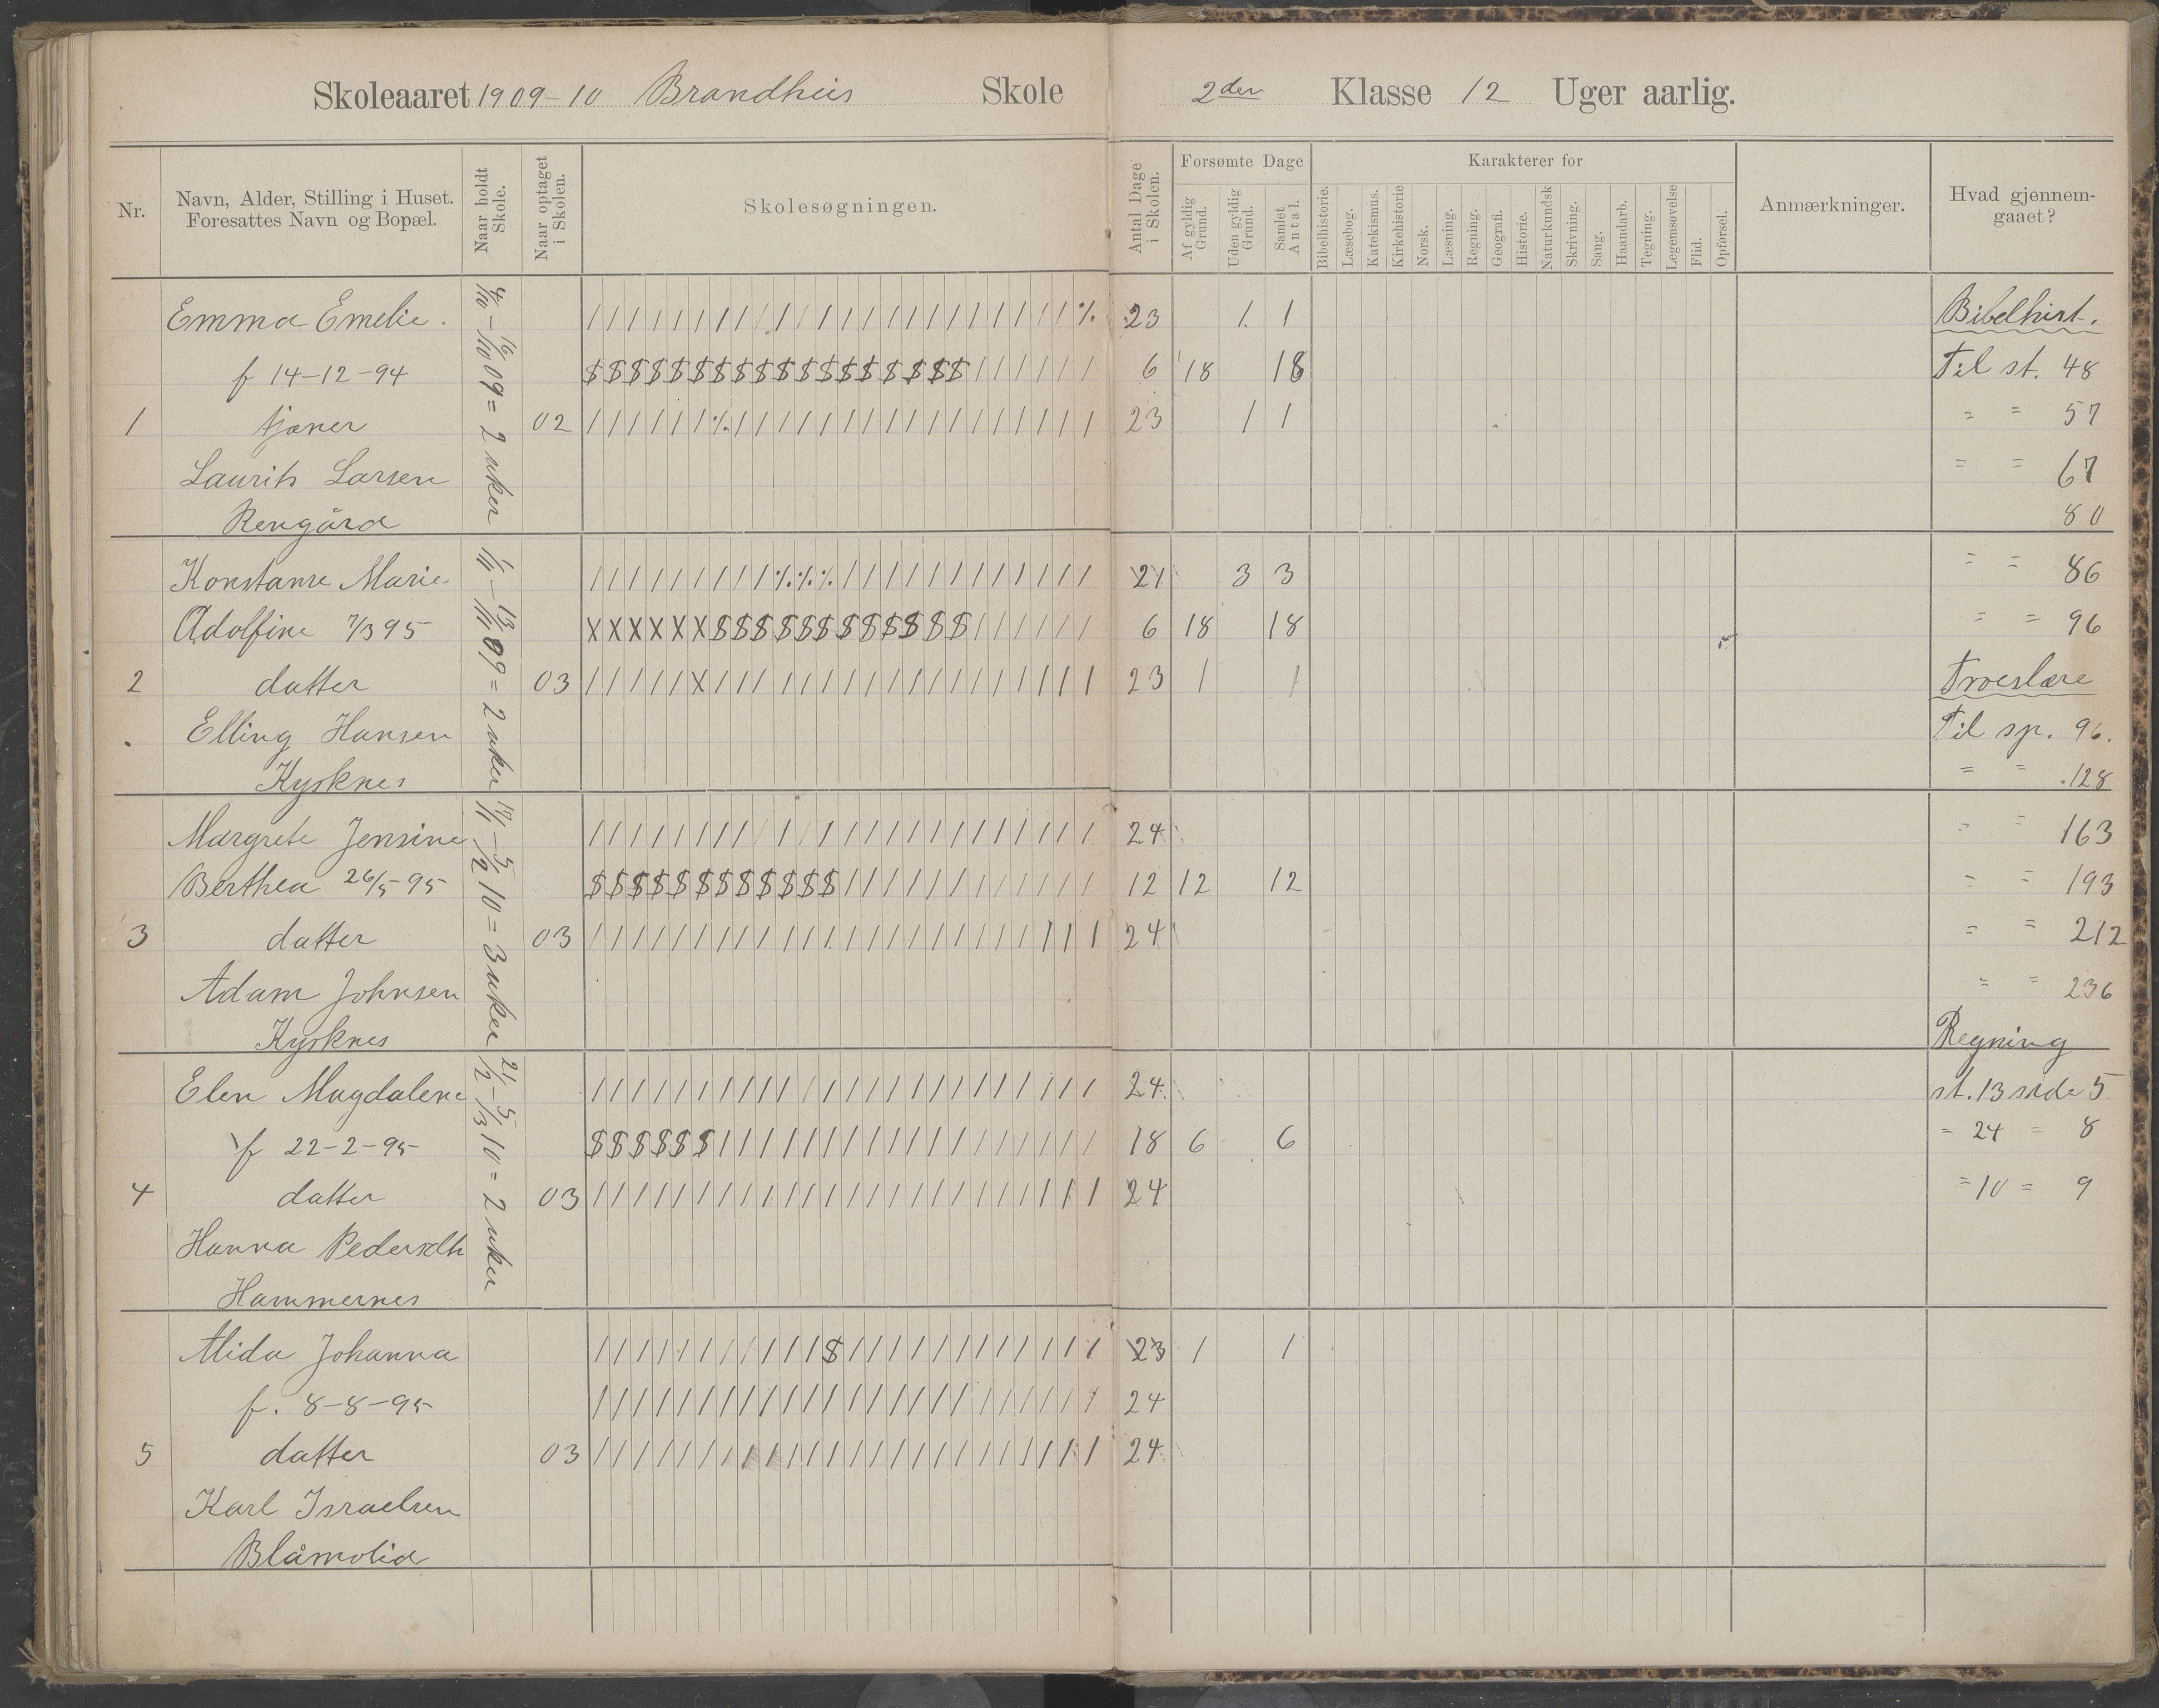 Skoleaaret 1909-10 Brandhus Skole 2den Klasse 12 Uger aarlig.
Nr.
Navn, Alder, Stilling i Huset.
Foresattes Navn og Bopæl.
Naar holdt
Skole.
Naar optaget
i Skolen.
Skolesøgningen.
Antal Dage
i Skolen.
Forsømte Dage
Af gyldig
Grund.
Uden gyldig
Grund.
Samlet
Antal.
Karakterer for
Bibelhistorie.
Læsebog.
Katekismus.
Kirkehistorie
Norsk.
Læsning.
Regning.
Geografi.
Historie.
Naturkundsk
Skrivning.
Sang.
Haandarb.
Tegning.
Legemsøvelse
Flid.
Opførsel.
Anmærkninger.
Hvad gjennem-
gaaet?
4/10 - 16/10 09 = 2 uker
1/11 - 13/11 09 = 2 uker
17/1 - 5/2 10 = 3 uker
21/2 - 5/3 10 = 2 uker
Emma Emelie. / / / / / / / / / / / / / / / / / / / / / / / % 23 1 1
f 14-12-94 $ $ $ $ $ $ $ $ $ $ $ $ $ $ $ $ $ $ / / / / / / 6 18 18
1 tjener 02 / / / / / / % / / / / / / / / / / / / / / / / / 23 1 1
Laurits Larsen
Rengård
Konstanse Marie / / / / / / / / / % % % / / / / / / / / / / / / 21 3 3
Adolfine 7/3 95 X X X X X X $ $ $ $ $ $ $ $ $ $ $ $ / / / / / / 6 18 18
2 datter 03 / / / / / X / / / / / / / / / / / / / / / / / / 23 1 1
Elling Hansen
Kysknes
Margrete Jensine / / / / / / / / / / / / / / / / / / / / / / / / 24
Berthea 26/5-95 $ $ $ $ $ $ $ $ $ $ $ $ / / / / / / / / / / / / 12 12 12
3 datter 03 / / / / / / / / / / / / / / / / / / / / / / / / 24
Adam Johnsen
Kysknes
Elen Magdalene / / / / / / / / / / / / / / / / / / / / / / / / 24
f 22-2-95 $ $ $ $ $ $ / / / / / / / / / / / / / / / / / / 18 6 6
4 datter 03 / / / / / / / / / / / / / / / / / / / / / / / / 24
Hanna Pedersdtr
Hammernes
Alida Johanna / / / / / / / / / / / $ / / / / / / / / / / / / 23 1 1
f. 8-8-95 / / / / / / / / / / / / / / / / / / / / / / / / 24
5 datter 03 / / / / / / / / / / / / / / / / / / / / / / / / 24
Karl Israelsen
Blåmolid
Bibelhist.
Til st. 48
= = 57
= = 67
80
= = 86
= = 96
Troeslære
Til sp. 96.
= = 128
= = 163
= = 193
= = 212
= = 236
Regning
st. 13 side 5
= 24 = 8
= 10 = 9